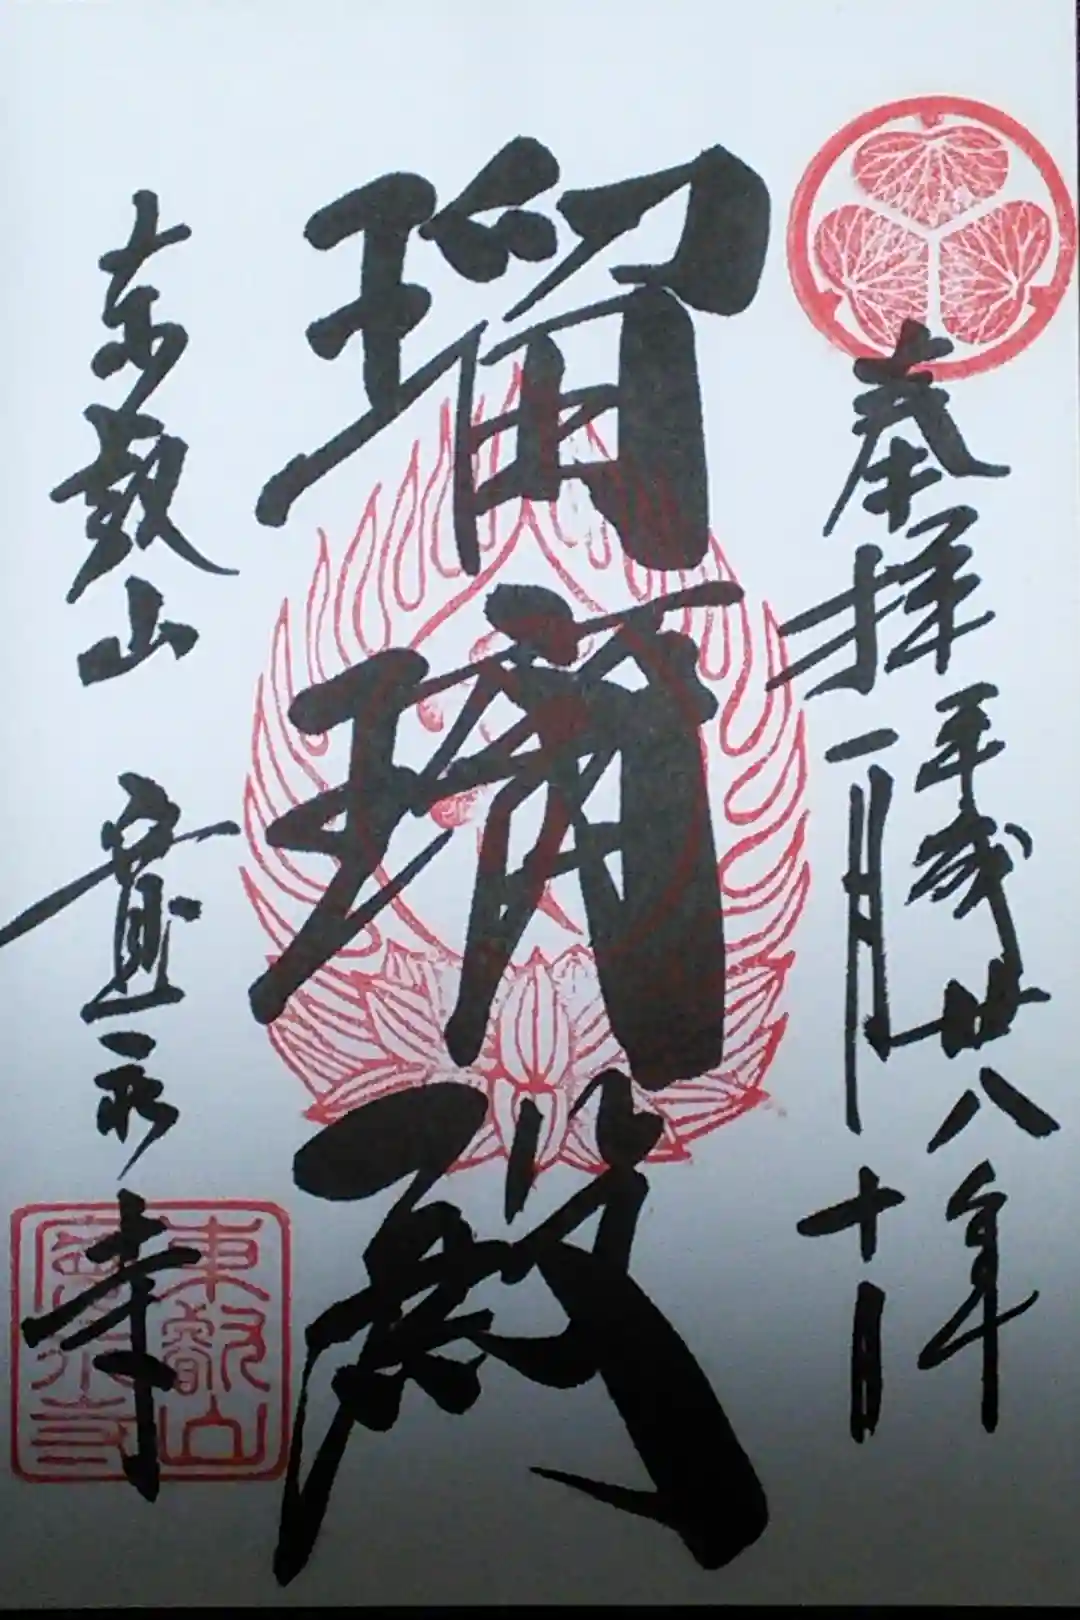 奉拝
平成廿八年
一月十日
瑠璃殿
東叡山
寛永寺
東叡山
寛永寺